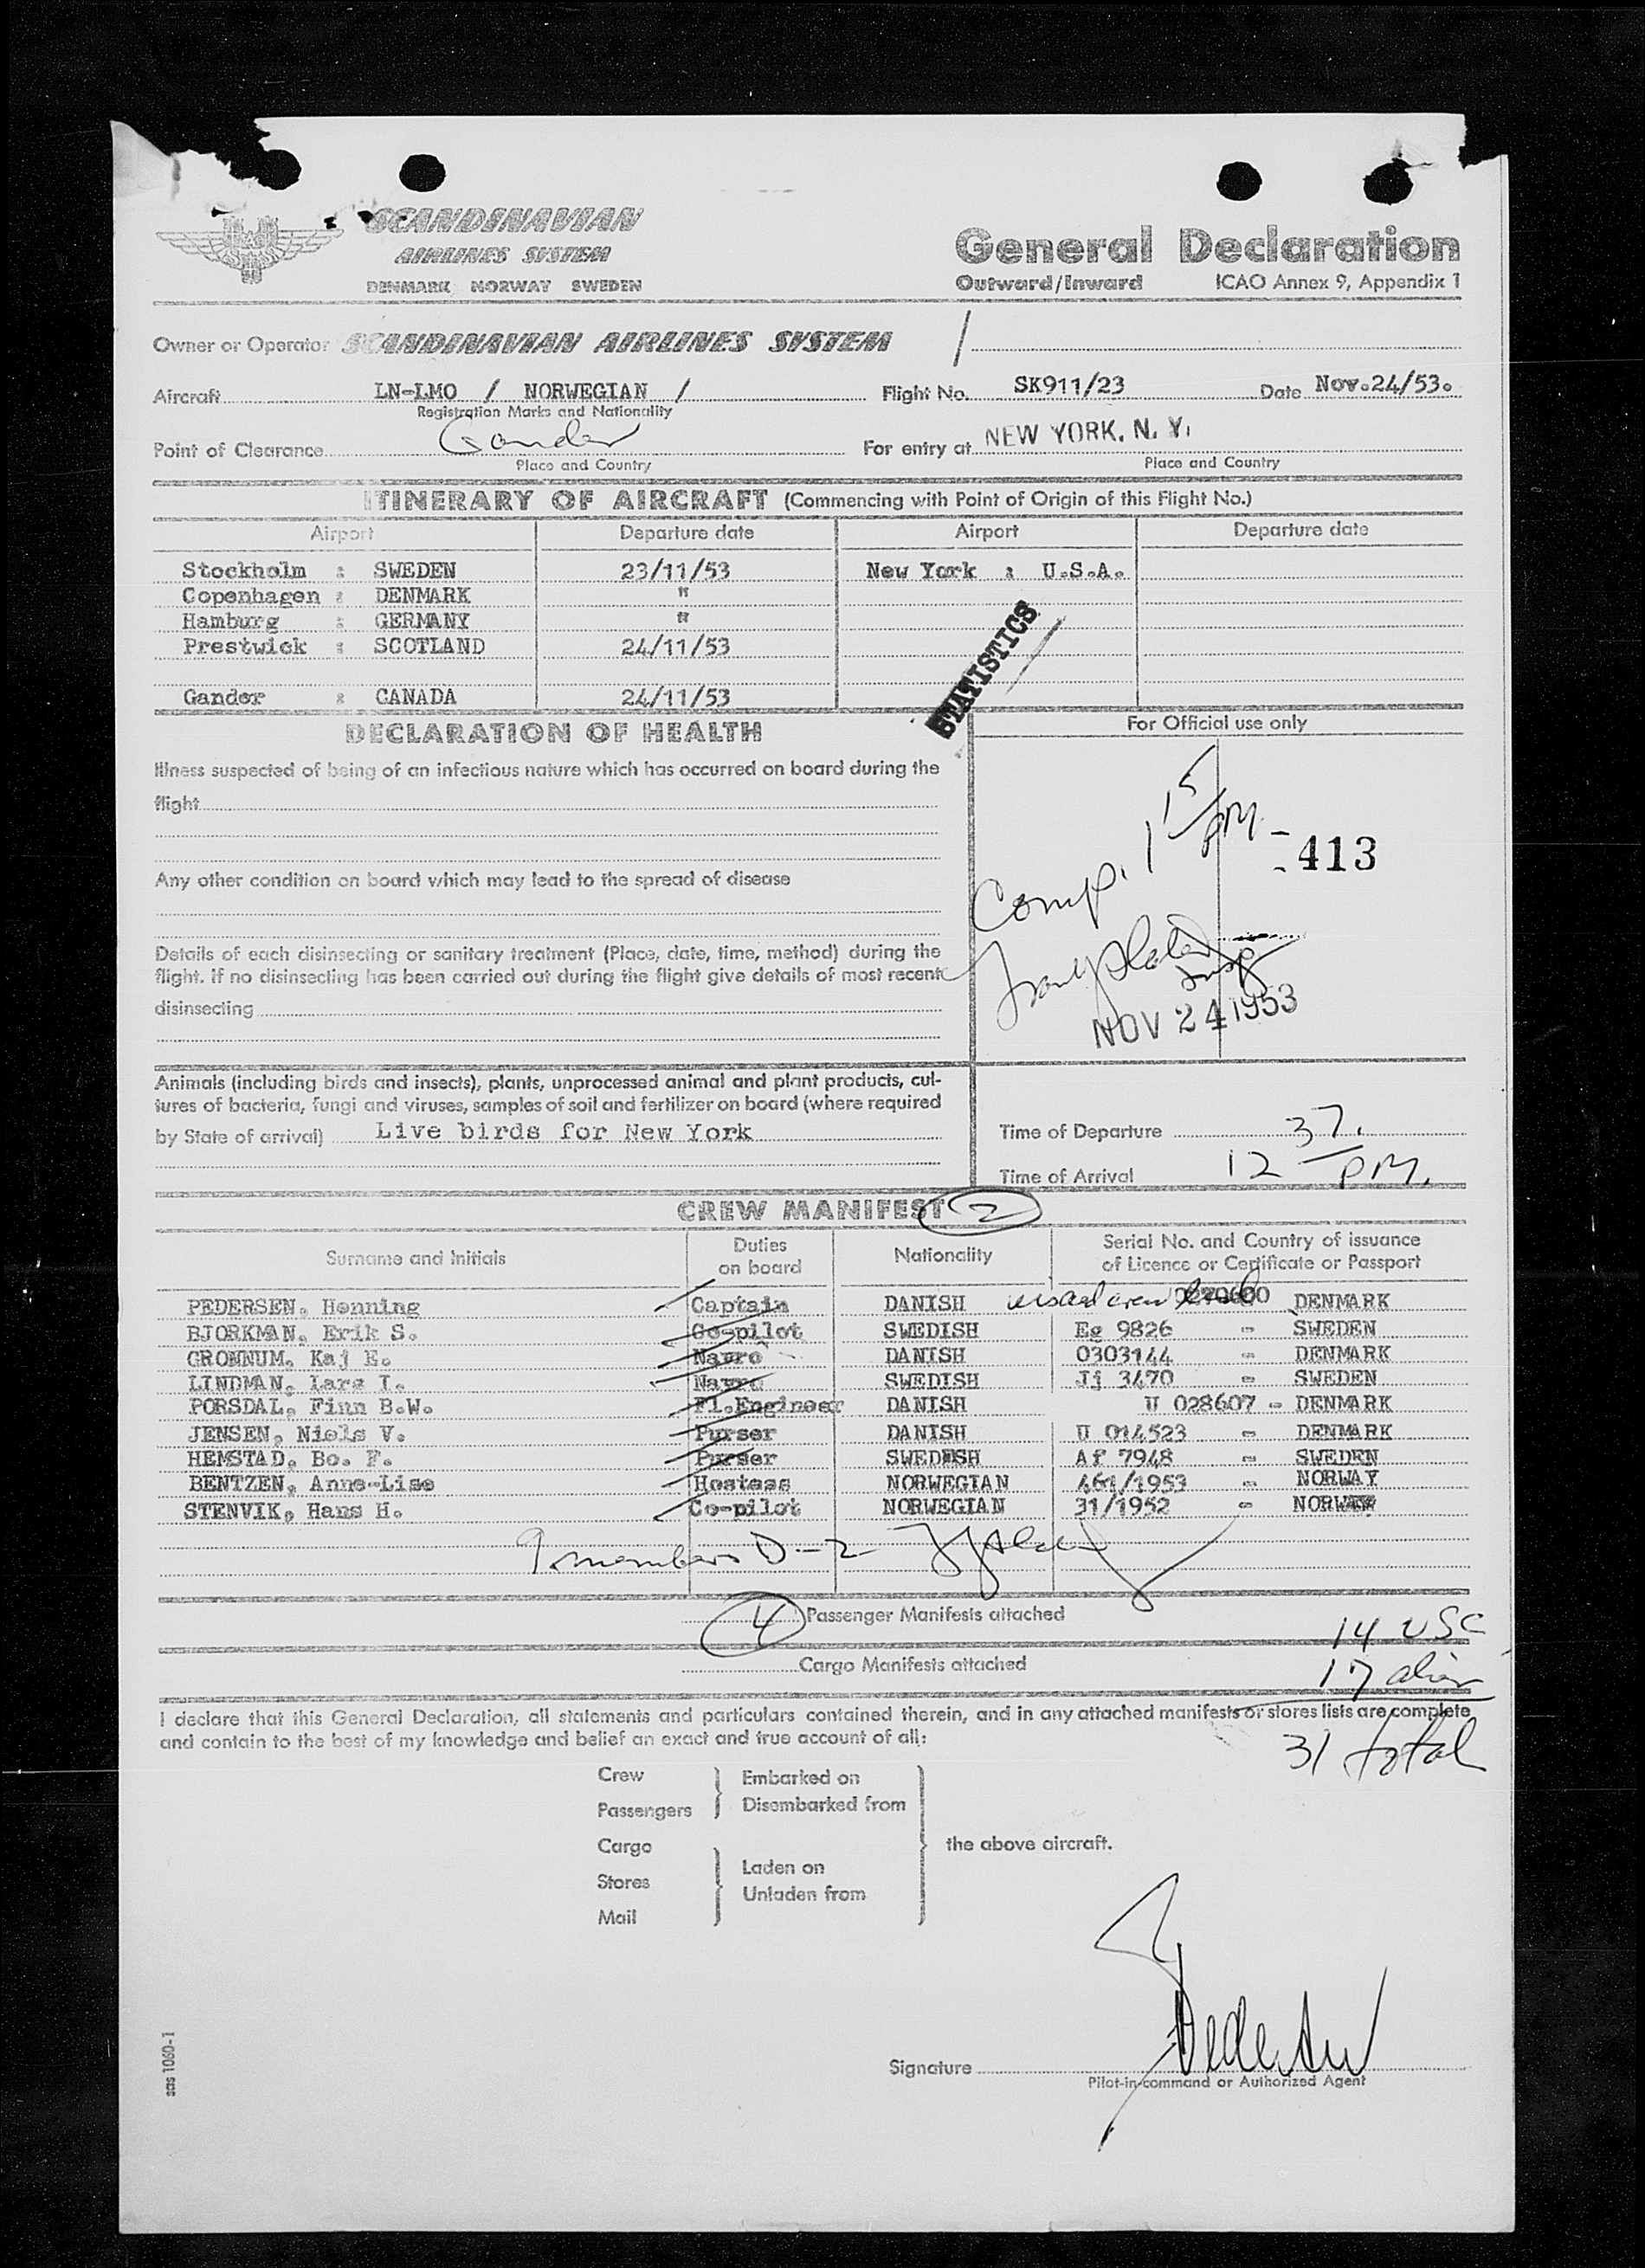 SCANDINAVIAN
AIRLINES SYSTEM
DENMARK NORWAY SWEDEN
General Declaration
Outward/Inward ICAO Annex 9, Appendix 1
Owner or Operator SCANDINAVIAN AIRLINES SYSTEM /
Aircraft LN-LMO / NORWEGIAN / Flight No. SK911/23 Date Nov.24/53.
Registration Marks and Nationality
Point of Clearance Gander For entry at NEW YORK, N. Y.
Place and Country Place and Country
ITINERARY OF AIRCRAFT (Commencing with Point of Origin of this Flight No.)
Airport Departure date Airport Departure date
Stockholm : SWEDEN 23/11/53 New York : U.S.A.
Copenhagen : DENMARK "
Hamburg : GERMANY "
Prestwick : SCOTLAND 24/11/53
STATISTICS
Gander : CANADA 24/11/53
DECLARATION OF HEALTH
For Official use only
Illness suspected of being of an infectious nature which has occurred on board during the
flight
Comp. 1 15/PM
- 413
Any other condition on board which may lead to the spread of disease
Details of each disinsecting or sanitary treatment (Place, date, time, method) during the
flight. If no disinsecting has been carried out during the flight give details of most recent
disinsecting
Insp
NOV 24 1953
Animals (including birds and insects), plants, unprocessed animal and plant products, cul-
tures of bacteria, fungi and viruses, samples of soil and fertilizer on board (where required
by State of arrival) Live birds for New York
Time of Departure
Time of Arrival 12 37/PM.
CREW MANIFEST 2
Surname and Initials Duties on board Nationality Serial No. and Country of issuance of Licence or Certificate or Passport
PEDERSEN, Henning Captain DANISH visaed crew DENMARK
BJORKMAN, Erik S. Co-pilot SWEDISH Eg 9826 - SWEDEN
GRONNUM, Kaj E. Navro DANISH 0303144 - DENMARK
LINDMAN, Lars I. Navro SWEDISH Jj 3470 - SWEDEN
PORSDAL, Finn B.W. Fl.Engineer DANISH U 028607 - DENMARK
JENSEN, Niels V. Purser DANISH U 014523 - DENMARK
HEMSTAD, Bo. F. Purser SWEDISH Af 7948 - SWEDEN
BENTZEN, Anne-Lise Hostess NORWEGIAN 461/1953 - NORWAY
STENVIK, Hans H. Co-pilot NORWEGIAN 31/1952 - NORWAY
9 members D-2
4 Passenger Manifests attached
14 USC
Cargo Manifests attached
17 alien
I declare that this General Declaration, all statements and particulars contained therein, and in any attached manifests or stores lists are complete
and contain to the best of my knowledge and belief an exact and true account of all:
31 total
Crew Embarked on
Passengers Disembarked from
Cargo the above aircraft.
Laden on
Stores
Unladen from
Mail
Signature Pedersen
Pilot-in-command or Authorized Agent
sas 1060-1